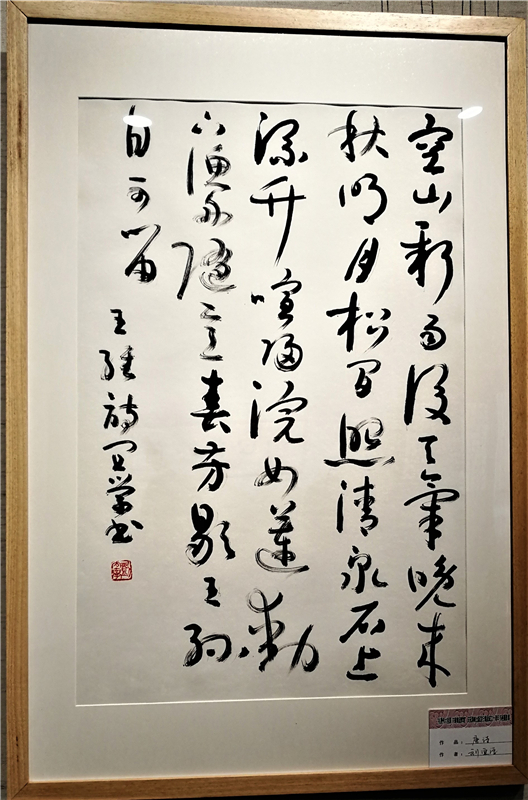 空山新雨後天氣晚来
秋明月松间照清泉石上
流竹喧归浣女蓮動
下漁舟隨意春芳歇王孫
自可留
王維詩 学书
作 品： 唐诗
作 者： 刘